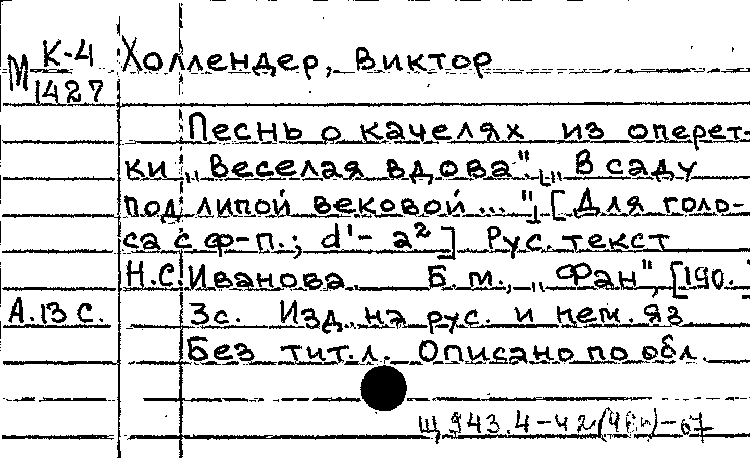 М К-4 Холлендер, Виктор
1427
Песнь о качелях из оперет-
ки „Веселая вдова". [„В саду
под липой вековой..."] [Для голо-
са с ф-п.; d¹-a²] Рус. текст
Н.С. Иванова. Б.м., „Фан", [190.]
А.13 с. 3с. Изд. на рус. и нем. яз.
Без тит.л. Описано по обл.
Щ943.4-42